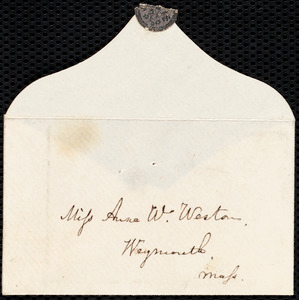 Miss Anne W. Weston,
Weymouth,
Mass.